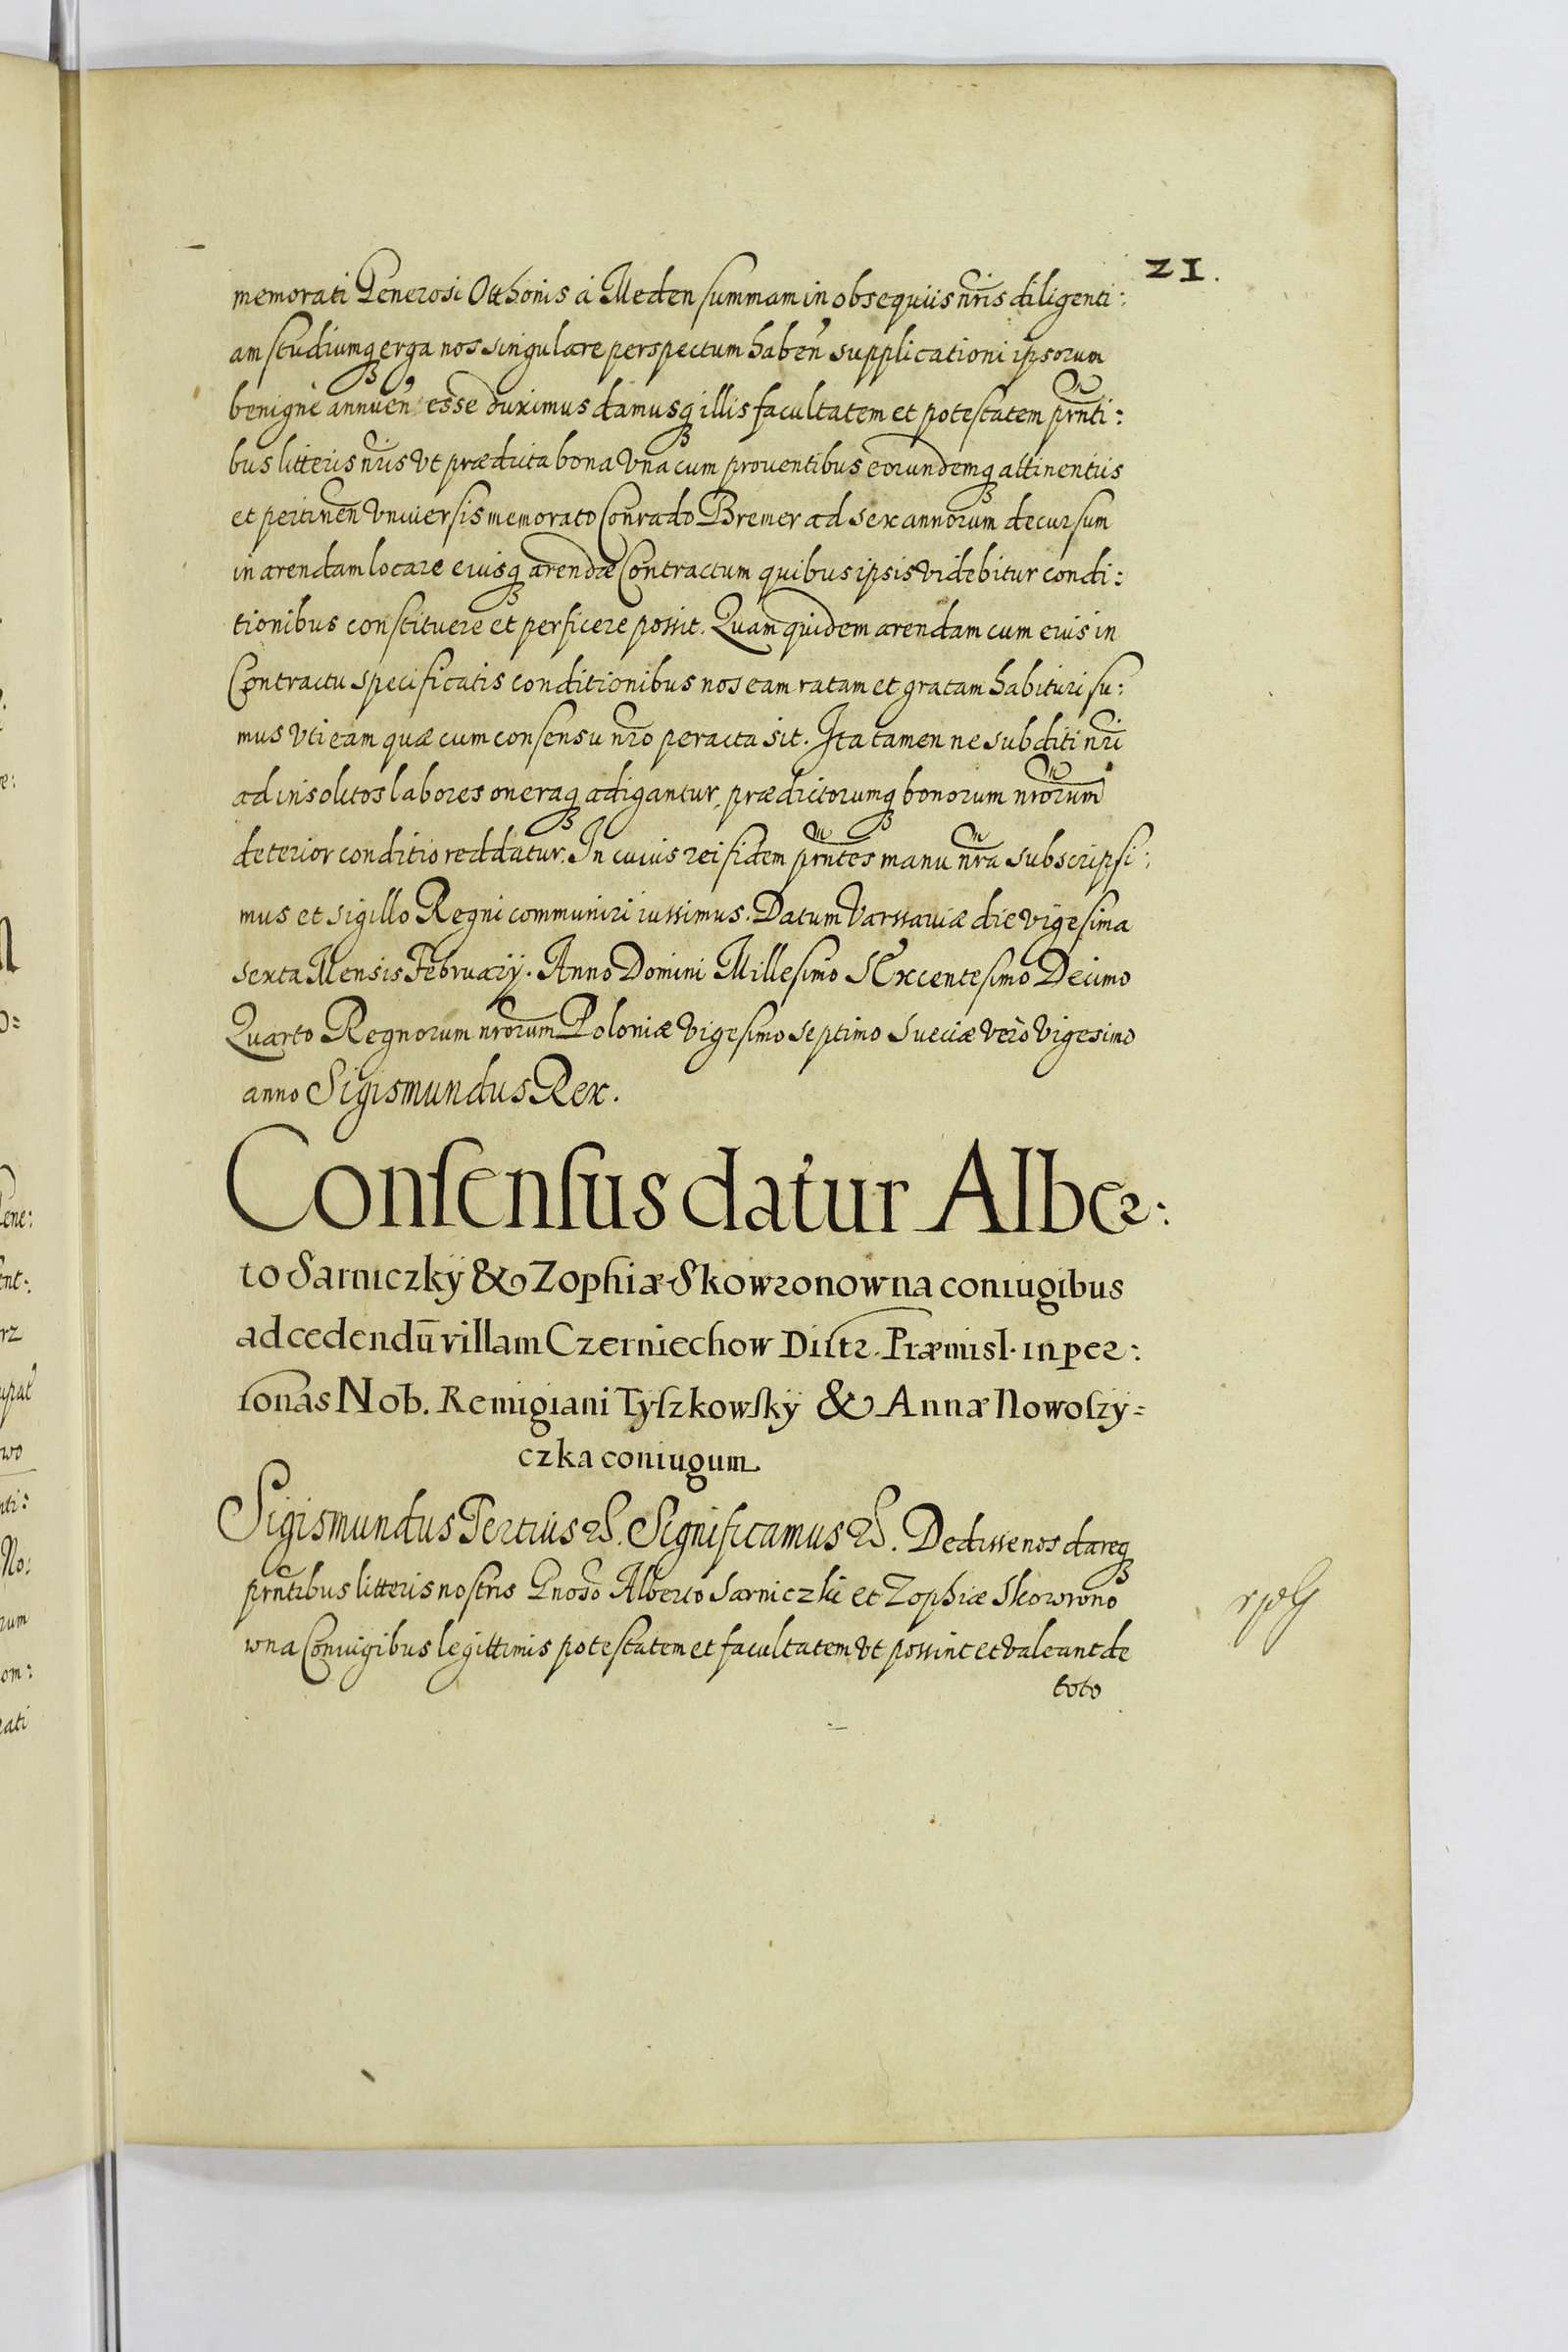 21.
memorati Generosi Otthonis à Meden summam in obsequiis nris diligenti:
am studiumq erga nos singulare perspectum haben supplicationi ipsorum
benignè annuen esse duximus damusq illis facultatem et potestatem prnti:
bus litteris nris Vt prædicta bona Vna cum prouentibus eorundemq attinentiis
et pertinen Vniuersis memorato Conrado Bremer ad sex annorum decursum
in arendam locare eiusq arendæ Contractum quibus ipsis Videbitur condi:
tionibus constituere et perficere possit. Quam quidem arendam cum eius in
Contractu specificatis conditionibus nos eam ratam et gratam habituri su:
mus Vti eam quæ cum consensu nro peracta sit. Ita tamen ne subditi nri
ad insolitos labores oneraq adigantur, prædictorumq bonorum nrorum
deterior conditio reddatur. In cuius rei fidem prntes manu nra subscripsi:
mus et sigillo Regni communiri iussimus. Datum Varssauiæ die Vigesima
sexta Mensis February. Anno Domini Millesimo SExcentesimo Decimo
Quarto Regnorum nrorum Poloniæ Vigesimo septimo Sueciæ Verò Vigesimo
anno Sigismundus Rex.
Consensus datur Alber:
to Sarniczky & Zophiæ Skowronowna coniugibus
ad cedendū villam Czerniechow Distr. Præmisl. in per:
sonas Nob. Remigiani Tyszkowsky & Annæ Nowoszy=
czka coniugum
Sigismundus Tertius &. Significamus &. Dedisse nos dareq
prntibus litteris nostris Gnoso Alberto Sarniczki et Zophiæ Skowrono
wna Coniugibus legittimis potestatem et facultatem Vt possint et Valeant de
toto